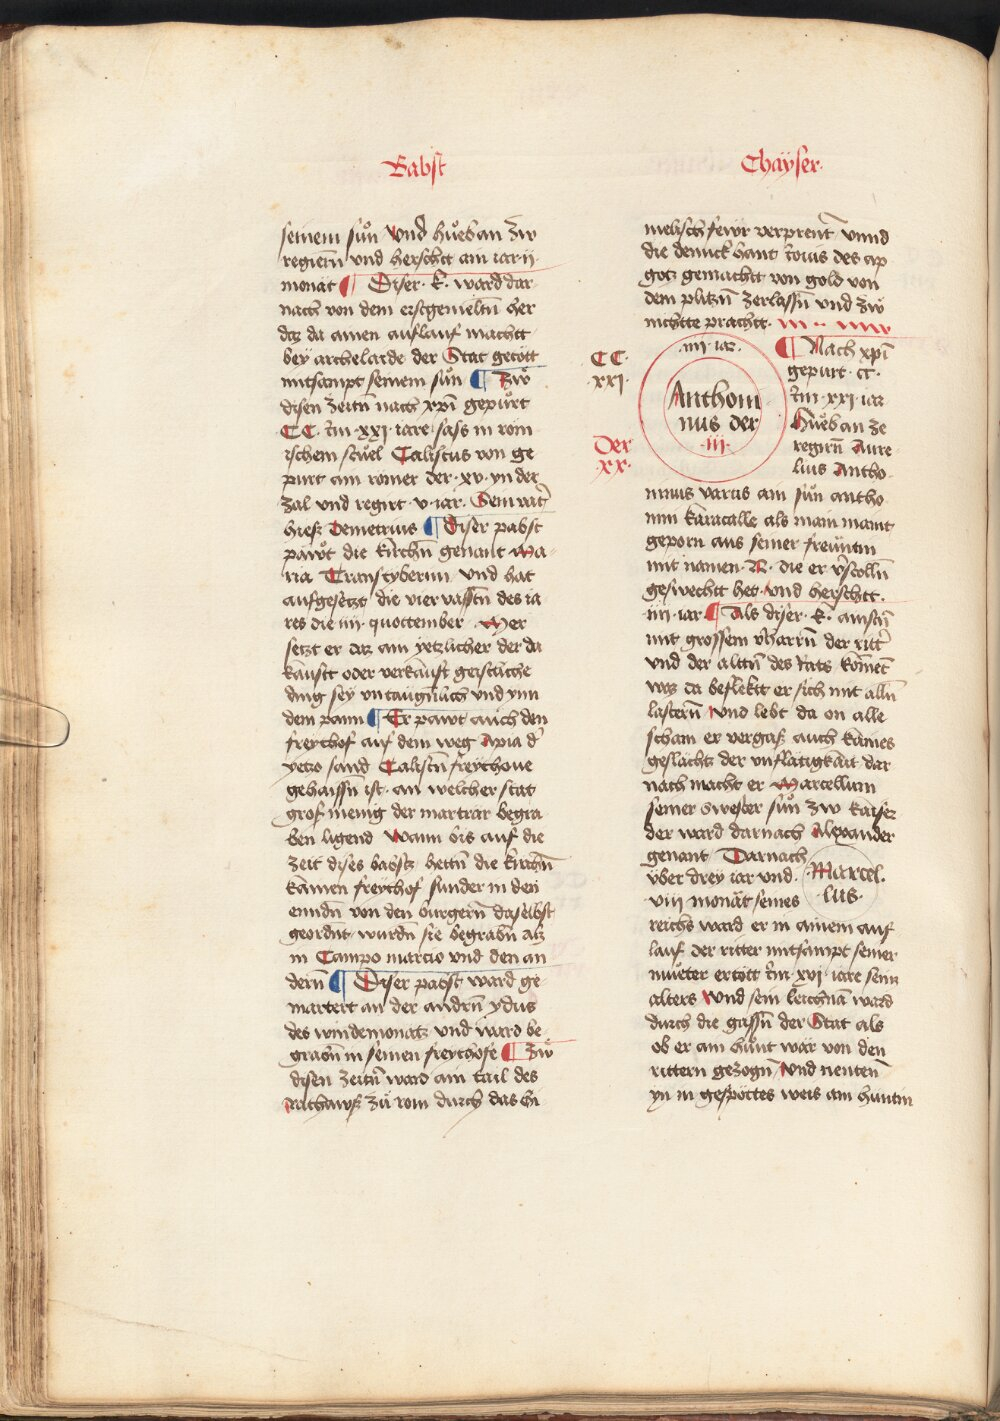 Babst
seinem sůn Vnd hůeb an zw
regiern̄ vnd herschtt ain iar ij
monät ¶ Diser · k · ward dar
nach von dem erstgemeltn̄ her
daz da ainen auflauf machtt
bey archelarde der Stat getött
mitsampt seinem sůn ¶ Zẘ
disen zeitn̄ nach xp̄i gepůrt
CC · im · xxi · iare sass in röm
ischem stůel Calistus von ge
purt ain römer der · xv · yn der
zal vnd regirt · v · iar · Sein vat̄
hiesz Demetrius ¶ Diser pabst
pawt die kirchn̄ genant Ma
ria Transtyberim vnd hat
aufgesëtzt die vier vassтn̄ des ia
res die iiij · quottember Mer
setzt er daz ain yetzlicher der da
kaufft oder verkauft geistliche
ding sey vntaugnlich vnd ynn
dem pann ¶ Er pawt auch den
freythof auf dem weg Apia d̄
yetzo sand Calistn̄ freythoue
gehaissn̄ ist · an welcher stat
grosz menig der marträr begra
ben ligend Wann bis auf die
zeit dises babsts hettn̄ die kirchn̄
kainen freythof sunder in den
enndn̄ von den burgern̄ daselbst
geordnt wurdn̄ sie begrabn̄ als
in Campo marcio vnd den an
dern̄ ¶ Diser pabst ward ge
martert an der andrn̄ ydus
des windemonatz vnd ward be
grabn̄ in seinen freythofe ¶ Zẘ
disen zeitn̄ ward ain tail des
Rathawsz zů rom durch das hi
Chayser
melisch fewr verprent̄ vnnd
die dennck hant iouis des ap
gotz gemachtt von gold von
dem plitzn̄ zerlassn̄ vnd zẘ
nichtte prachtt·
CC·
xxi·
Der
·xx·
·iiij· iar·
Anthoni
nus der
·iii·
¶ Nach xp̄i
gepurt · cc ·
im · xxi · iar
Hůeb an ze
regirn̄ Aure
lius Antho
ninus varus ain sůn antho
nini karacalle als main maint
geporn aus seiner freuntin
mit namen · R · die er v̄stolln̄
geswechtt het · Vnd herschtt ·
iiij · iar ¶ Als diser · k · ainstn̄
mit grossem v̄harrn̄ der ritt̄
vnd der alttn̄ des rats komet̄
waz da beflektt er sich mit alln̄
lastern̄ Vnd lebt da on alle
scham er vergasz auch kaines
geslächtz der vnflätigkäit dar
nach macht er Marcellum
seiner swester sůn zw kaiser
der ward darnach Alexander
genant Darnach
über drey iar vnd·
viij monät seines
·Marcel·
·lus·
reichs ward er in ainem auf
lauf der ritter mitsampt seiner
můeter ertött im · xvi · iare seinz
alters Vnd sein leichnā ward
durch die gassn̄ der Stat als
ob er ain hůnt wär von den
rittern gezogn̄ Vnd nenten̄
yn in gespöttes weis ain hüntin